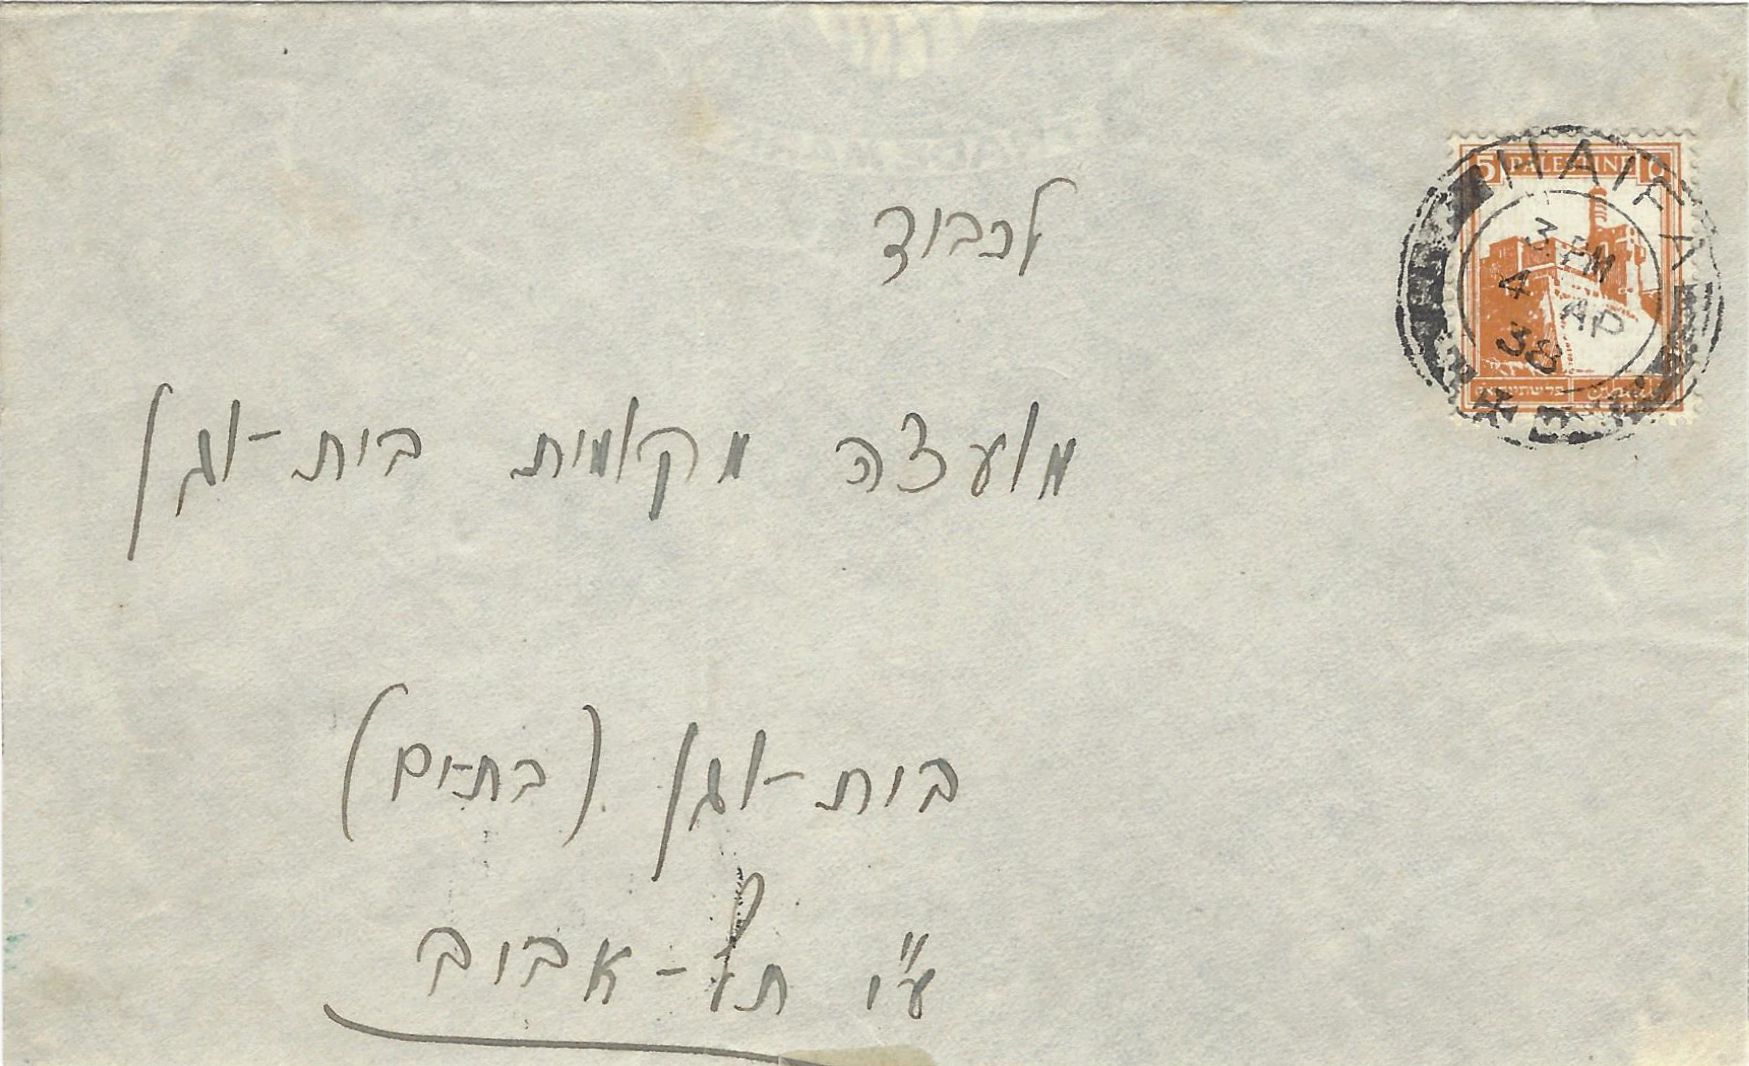 5 PALESTINE
HAIFA
3 PM
4 AP
38
לכבוד
מועצה מקומית בית-וגן
בית-וגן (בת-ים)
ע"י תל-אביב